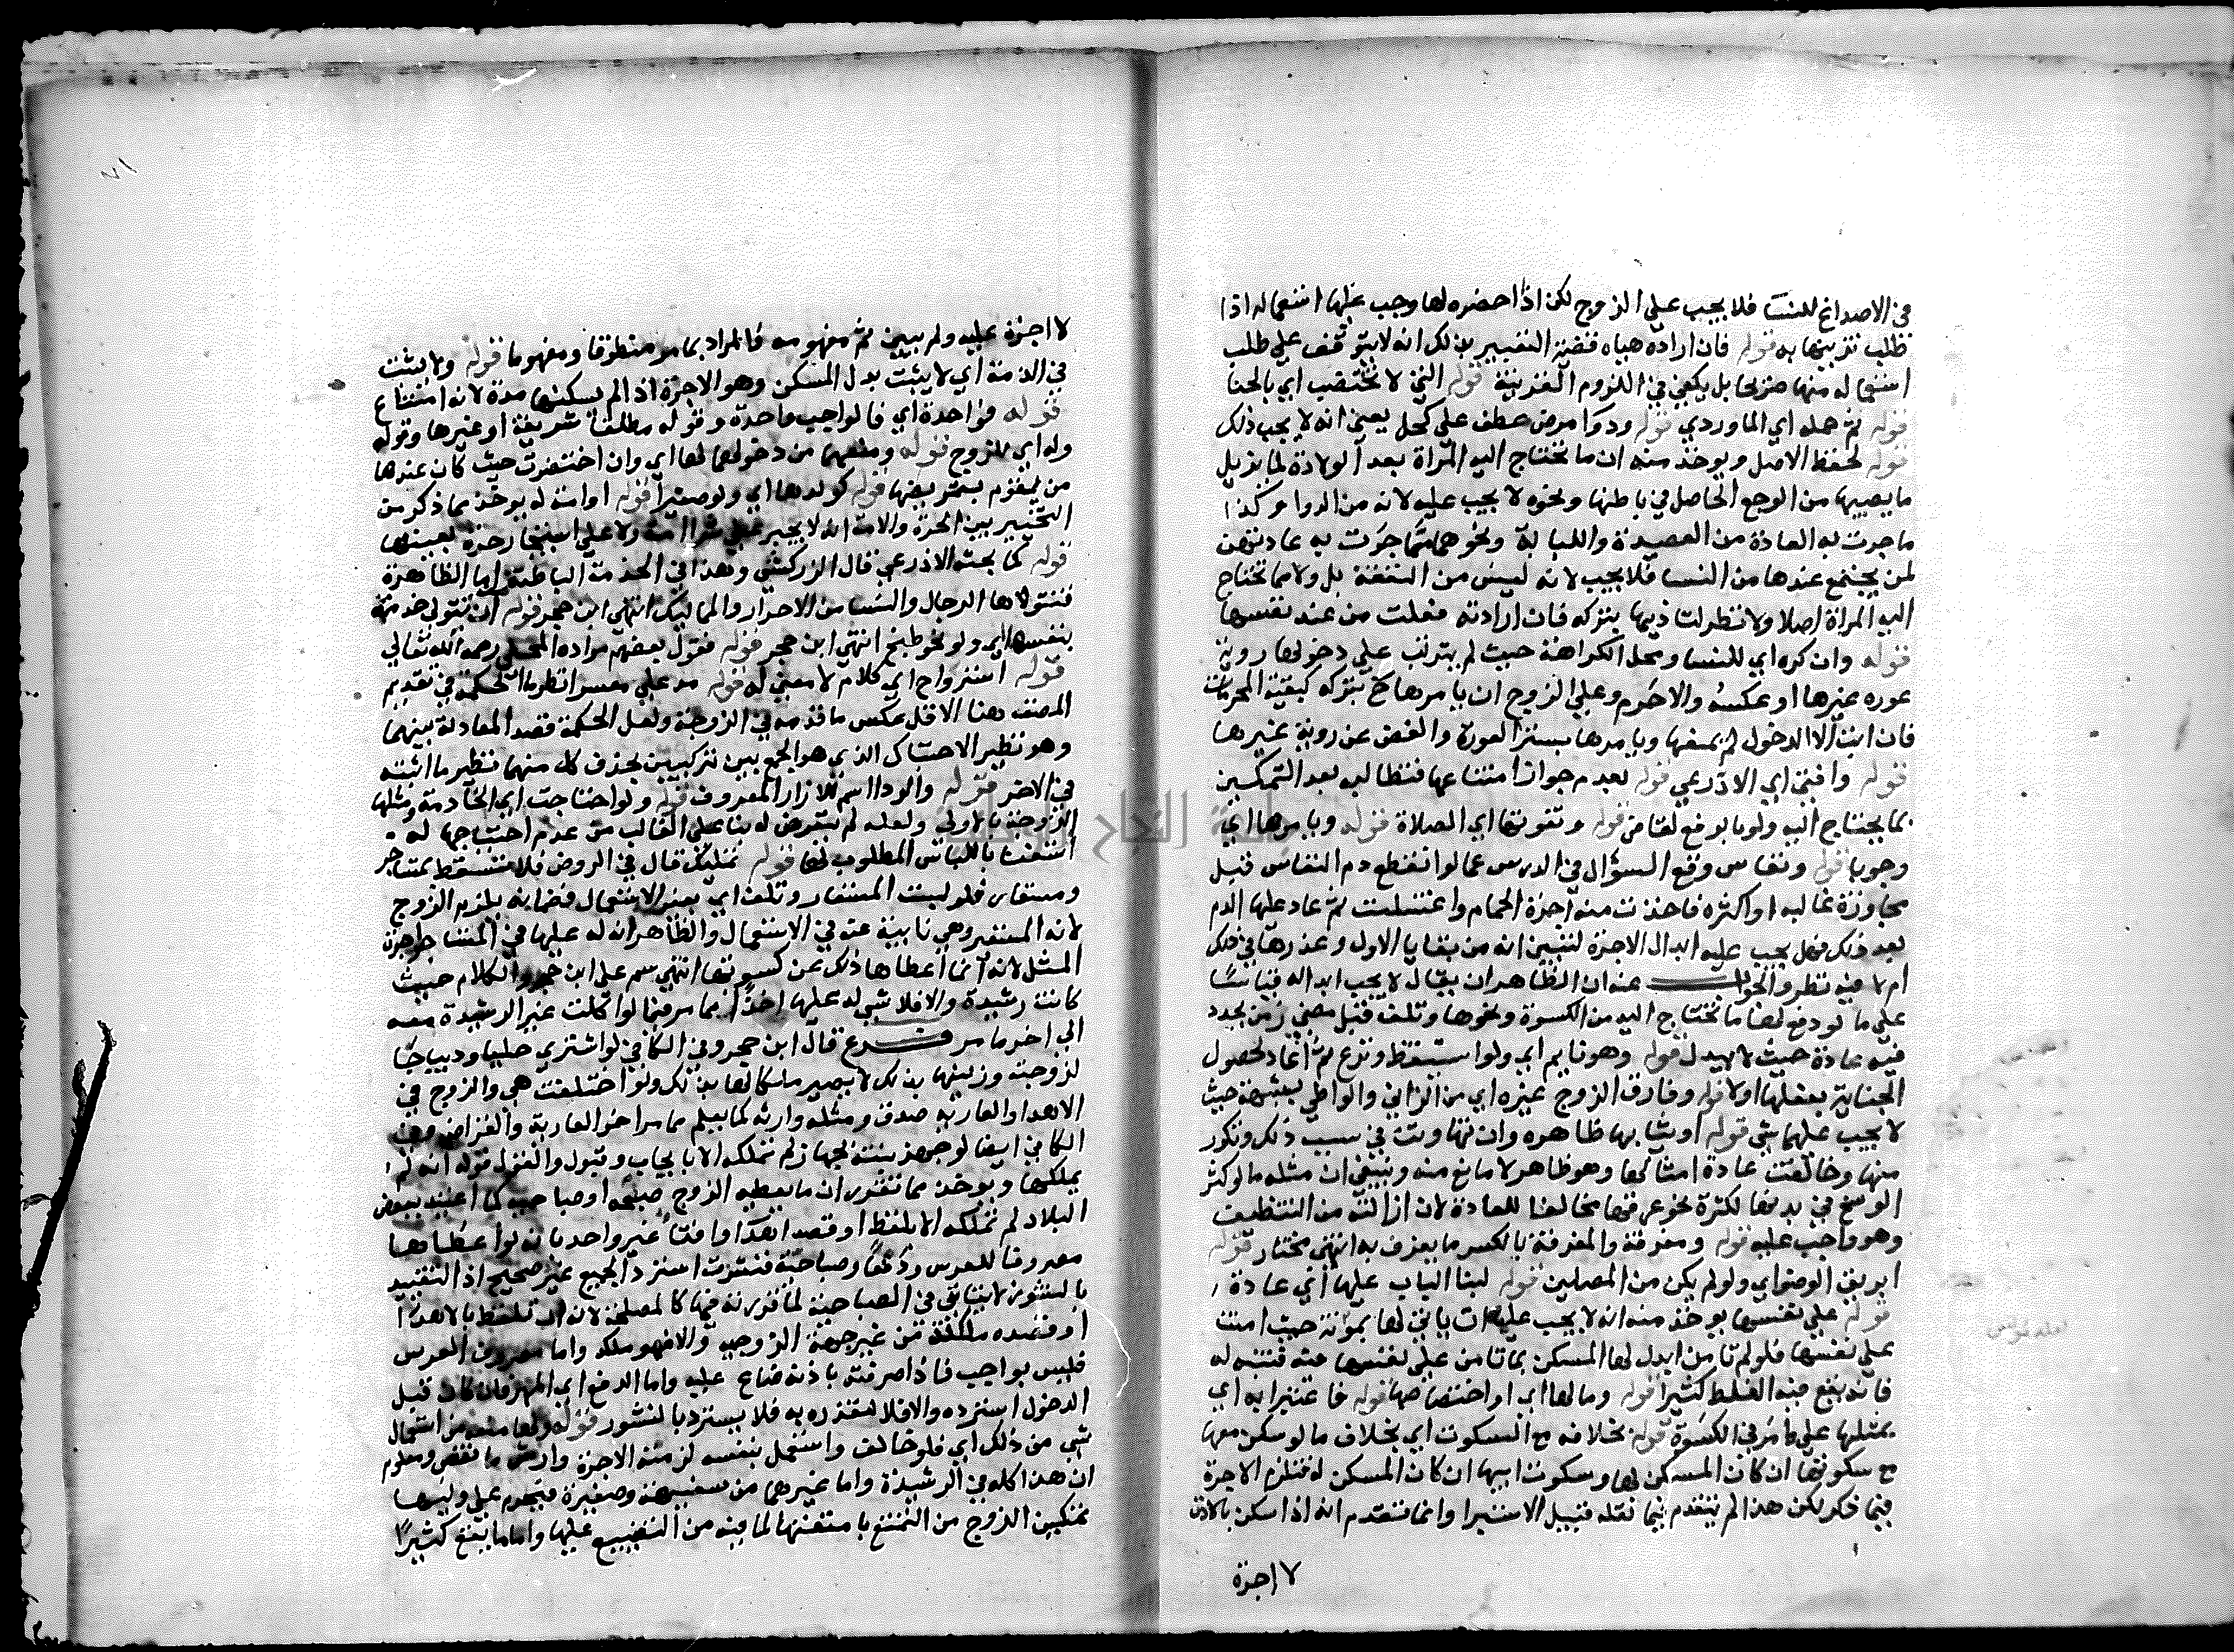 في الاصداغ للنسا فلا يجب على الزوج لكن اذا احضره لها وجب عليها استعماله اذا
طلب تزينها به قوله فان اراده هياه قضية التعبير بذلك انه لا يتوقف على طلب
استعماله منها صريحا بل يكفي في اللزوم القرينة قوله التي لا تختضب اي بالحنا
قوله ثم حمله اي الماوردي قوله ودوا مرض عطف على كحل يعني انه لا يجب ذلك
قوله لحفظ الاصل ويوخذ منه ان ما تحتاج اليه المراة بعد الولادة لما يزيل
ما يصيبها من الوجع الحاصل في باطنها ونحوه لا يجب عليه لانه من الدوا وكذا
ما جرت به العادة من العصيدة واللبابة ونحوهما مما جرت به عادتهن
لمن يجتمع عندها من النسا فلا يجب لانه ليس من النفقة بل ولا مما تحتاج
اليه المراة اصلا ولا نظر لتاذيها بتركه فان ارادته فعلت من عند نفسها
قوله وان كره اي للنسا ومحل الكراهة حيث لم يترتب على دخولها روية
عورة غيرها او عكسه والا حرم وعلى الزوج ان يامرها ح بتركه كبقية المحرمات
فان ابت الا الدخول لم يمنعها ويامرها بستر العورة والغض عن روية غيرها
قوله وافتى اي الاذرعي قوله بعدم جواز امتناعها فتطالبه بعد التمكين
بما يحتاج اليه ولو بالرفع لقاض قوله وتفوتها اي الصلاة قوله ويامرها اي
وجوبا قوله ونفاس وقع السؤال في الدرس عما لو انقطع دم النفاس قبل
مجاوزة غالبه او اكثره فاخذت منه اجرة الحمام واغتسلت ثم عاد عليها الدم
بعد ذلك فهل يجب عليه ابدال الاجرة لتبين انه من بقايا الاول وعذرها في ذلك
ام لا فيه نظر والجواب عنه ان الظاهر ان يقال لا يجب ابداله قياسا
على ما لو دفع لها ما تحتاج اليه من الكسوة ونحوها وتلف قبل مضي زمن يجدد
فيه عادة حيث لا يبدل قوله وهو نايم اي ولو استيقظ ونزع ثم اعاد لحصول
الجنابة بفعلها اولا قوله وفارق الزوج غيره اي من الزاني والواطي بشبهة حيث
لا يجب عليهما شي قوله او ثيابها ظاهره وان تهاونت في سبب ذلك وتكرر
منها وخالفت عادة امثالها وهو ظاهر لا مانع منه وينبغي ان مثله ما لو كثر
الوسخ في بدنها لكثرة نحو عرقها مخالفا للعادة لان ازالته من التنظيف
وهو واجب عليه قوله ومغرفة والمغرفة بالكسر ما يغرف به انتهى مختار قوله
ابريق الوضو اي ولو لم يكن من المصلين قوله لبنا الباب عليها اي عادة
قوله على نفسها يوخذ منه انه لا يجب عليه ان ياتي لها بمونة حيث امنت
على نفسها فلو لم تامن ابدل لها المسكن بما تامن على نفسها منه فتنبه له
فانه يقع فيه الغلط كثيرا قوله ومالها اي او اختصاصها قوله فاعتبرا به اي
بمثلها على ما مر في الكسوة قوله بخلافه مع السكوت اي بخلاف ما لو سكن معها
مع سكوتها ان كان المسكن لها وسكوت ابيها ان كان المسكن له فتلزم الاجرة
فيما ذكر لكن هذا لم يتقدم فيما نقله قبيل الاستبرا وانما تقدم انه اذا سكن بالاذن
لا اجرة
لا اجرة عليه ولم يبين ثم مفهومه فالمراد بما مر منطوقا ومفهوما قوله ولا يثبت
في الذمة اي لا يثبت بدل المسكن وهو الاجرة اذا لم يسكنها مدة لانه امتناع
قوله فواحدة اي فالواجب واحدة وقوله مطلقا شريفة او غيرها وقوله
وله اي للزوج قوله ومنعهما من دخولهما لها اي وان اختفرت حيث كان عندها
من يقوم بتمريضها قوله كولدها اي ولو صغيرا قوله او امة له يوخذ مما ذكر من
التخيير بين الحرة والامة انه لا يجبر على شرا امة ولا على استيجار حرة بعينها
قوله كما بحثه الاذرعي قال الزركشي وهذا في الخدمة الباطنة اما الظاهرة
فتتولاها الرجال والنسا من الاحرار والمماليك انتهى ابن حجر قوله ان تتولى خدمة
نفسها اي ولو نحو طبخ انتهى ابن حجر قوله فقول بعضهم مراده المحلي رحمه الله تعالى
قوله استرواح اي كلام لا معنى له قوله مد على معسر انظر ما الحكمة في تقديم
المصنف هنا الاقل عكس ما قدمه في الزوجة ولعل الحكمة قصد المعادلة بينهما
وهو نظير الاحتباك الذي هو الجمع بين تركيبين بحذف كل منهما نظير ما اثبته
في الاخر قوله والردا اسم للازار المعروف قوله ولو احتاجت اي الخادمة ومثلها
الزوجة بالاولى ولعله لم يتعرض له بنا على الغالب من عدم احتياجها له
استغنا باللباس المطلوب لها قوله تمليك قال في الروض فلا تسقط بمستاجر
ومستعار فلو لبست المستعار وتلف اي بغير الاستعمال فضمانه يلزم الزوج
لانه المستعير وهي نايبة عنه في الاستعمال والظاهر ان له عليها في المستاجر اجرة
المثل لانه انما اعطاها ذلك عن كسوتها انتهى سم على ابن حجر والكلام حيث
كانت رشيدة والا فلا شي له عليها اخذا مما مر فيما لو اكلت غير الرشيدة معه
الى اخر ما مر فرع قال ابن حجر وفي الكافي لو اشترى حليا وديباجا
لزوجته وزينها بذلك لا يصير ملكا لها بذلك ولو اختلفت هي والزوج في
الاهدا والعارية صدق ومثله وارثه كما يعلم مما مر اخر العارية والقراض وفي
الكافي ايضا لو جهز بنته بجهاز لم تملكه الا بايجاب وقبول والقول قوله انه لم
يملكها ويوخذ مما تقرر ان ما يعطيه الزوج صبحة او صباحية كما اعتيد ببعض
البلاد لم تملكه الا بلفظ او قصد اهدا وافتا غير واحد بانه لو اعطاها
مصروفا للعرس ودفعا وصباحية فنشزت استرد الجميع غير صحيح اذ التقييد
بالنشوز لا يتاتى في الصباحية لما قررته فيها كالمصلحة لانه ان تلفظ بالاهدا
او قصده ملكته من غير جهة الزوجية والا فهو ملكه واما مصروف العرس
فليس بواجب فاذا صرفته باذنه ضاع عليه واما الدفع اي المهر فان كان قبل
الدخول استرده والا فلا لتقرره به فلا يسترد بالنشوز قوله ولها منعه من استعمال
شي من ذلك اي فلو خالف واستعمل بنفسه لزمته الاجرة وارش ما نقص ومعلوم
ان هذا كله في الرشيدة واما غيرهما من سفيهة وصغيرة فيحرم على وليها
تمكين الزوج من التمتع بامتعتها لما فيه من التضييع عليها واما ما يقع كثيرا